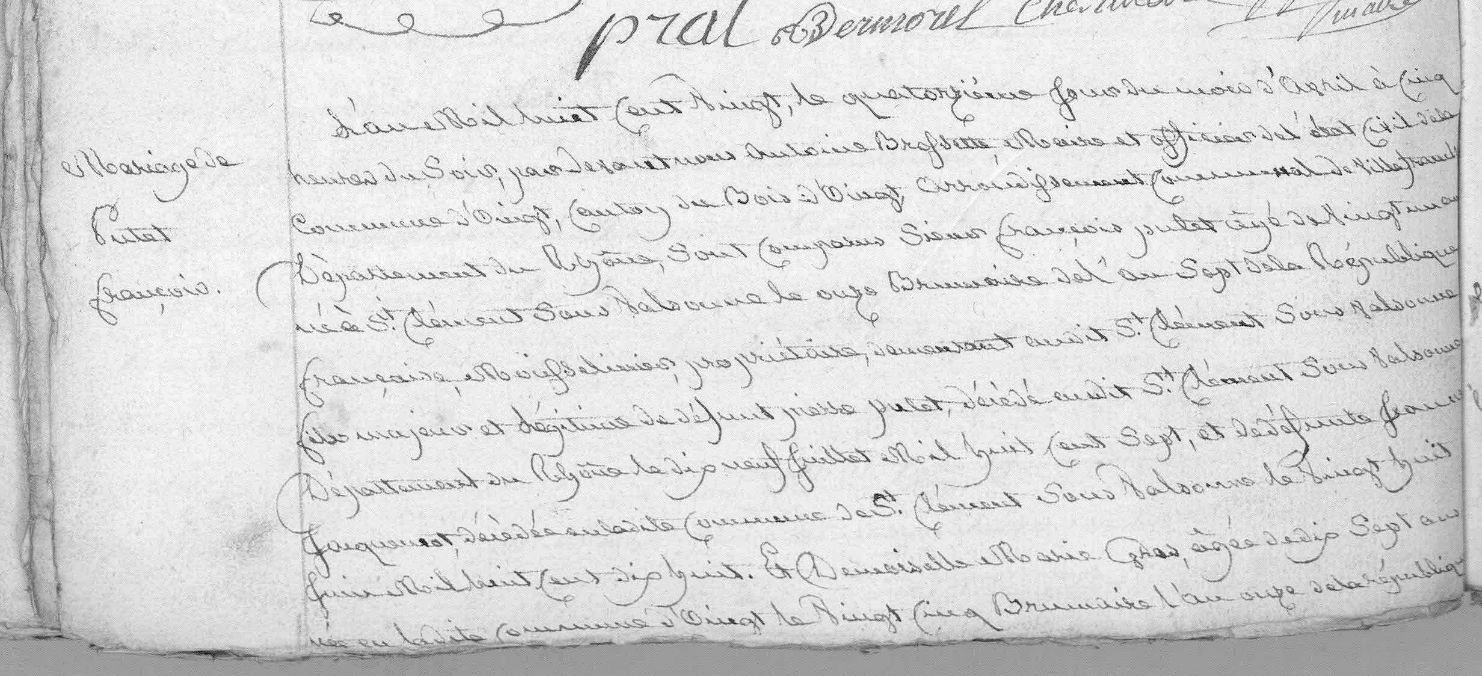 pral Dermorel
L'an Mil huit Cent Vingt, le quatorziéme Jour du mois d'Avril à Cinq
heures du Soir, par devant nous Antoine Brossette, Maire et officier de l'état Civil de la
Commune d'Oingt, Canton du Bois d'Oingt, Arrondissement Communal de Villefranche
Département du Rhône, Sont Comparus Sieur François putet âgé de Vingt un ans
né à St. Clément Sous Valsonne le onze Brumaire de l'an Sept de la République
française, Mousselinier, propriétaire, demeurant audit St. Clément Sous Valsonne
fils majeur et Légitime de défunt pierre putet, décédé audit St. Clément Sous Valsonne
Département du Rhône le dix neuf Juillet Mil huit Cent Sept, et de défunte
Jacquemot, décédée en ladite Commune de St. Clément Sous Valsonne le Vingt huit
Juin Mil huit Cent dix huit. Et Demoiselle Marie Gras, âgée de dix Sept ans
née en ladite Commune d'Oingt le Vingt Cinq Brumaire l'an onze de la républiq
Mariage de
Putet
françois.